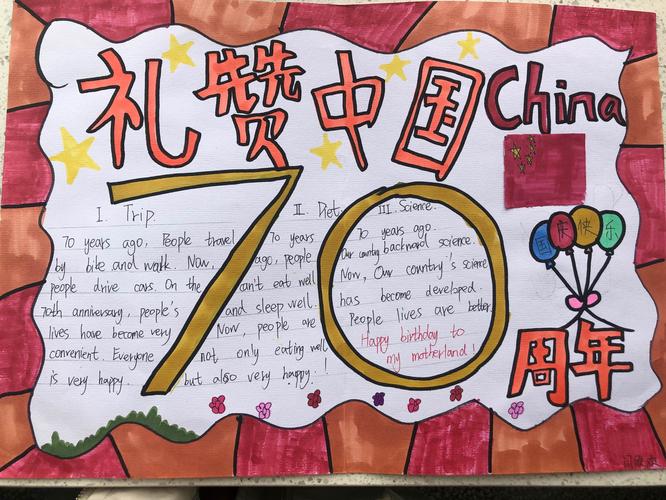 礼赞中国China
70
周年
国庆快乐
I. Trip.
70 years ago, People travel
by bike and walk. Now,
people drive cars. On the
70th anniversary, people's
lives have become very
convenient. Everyone
is very happy.
II. Diet.
70 years
ago, people
can't eat well
and sleep well.
Now, people are
not only eating well
but also very happy.!
III. Science.
70 years ago.
Our country backward science.
Now, Our country's science
has become developed.
People lives are better.
Happy birthday to
my motherland!